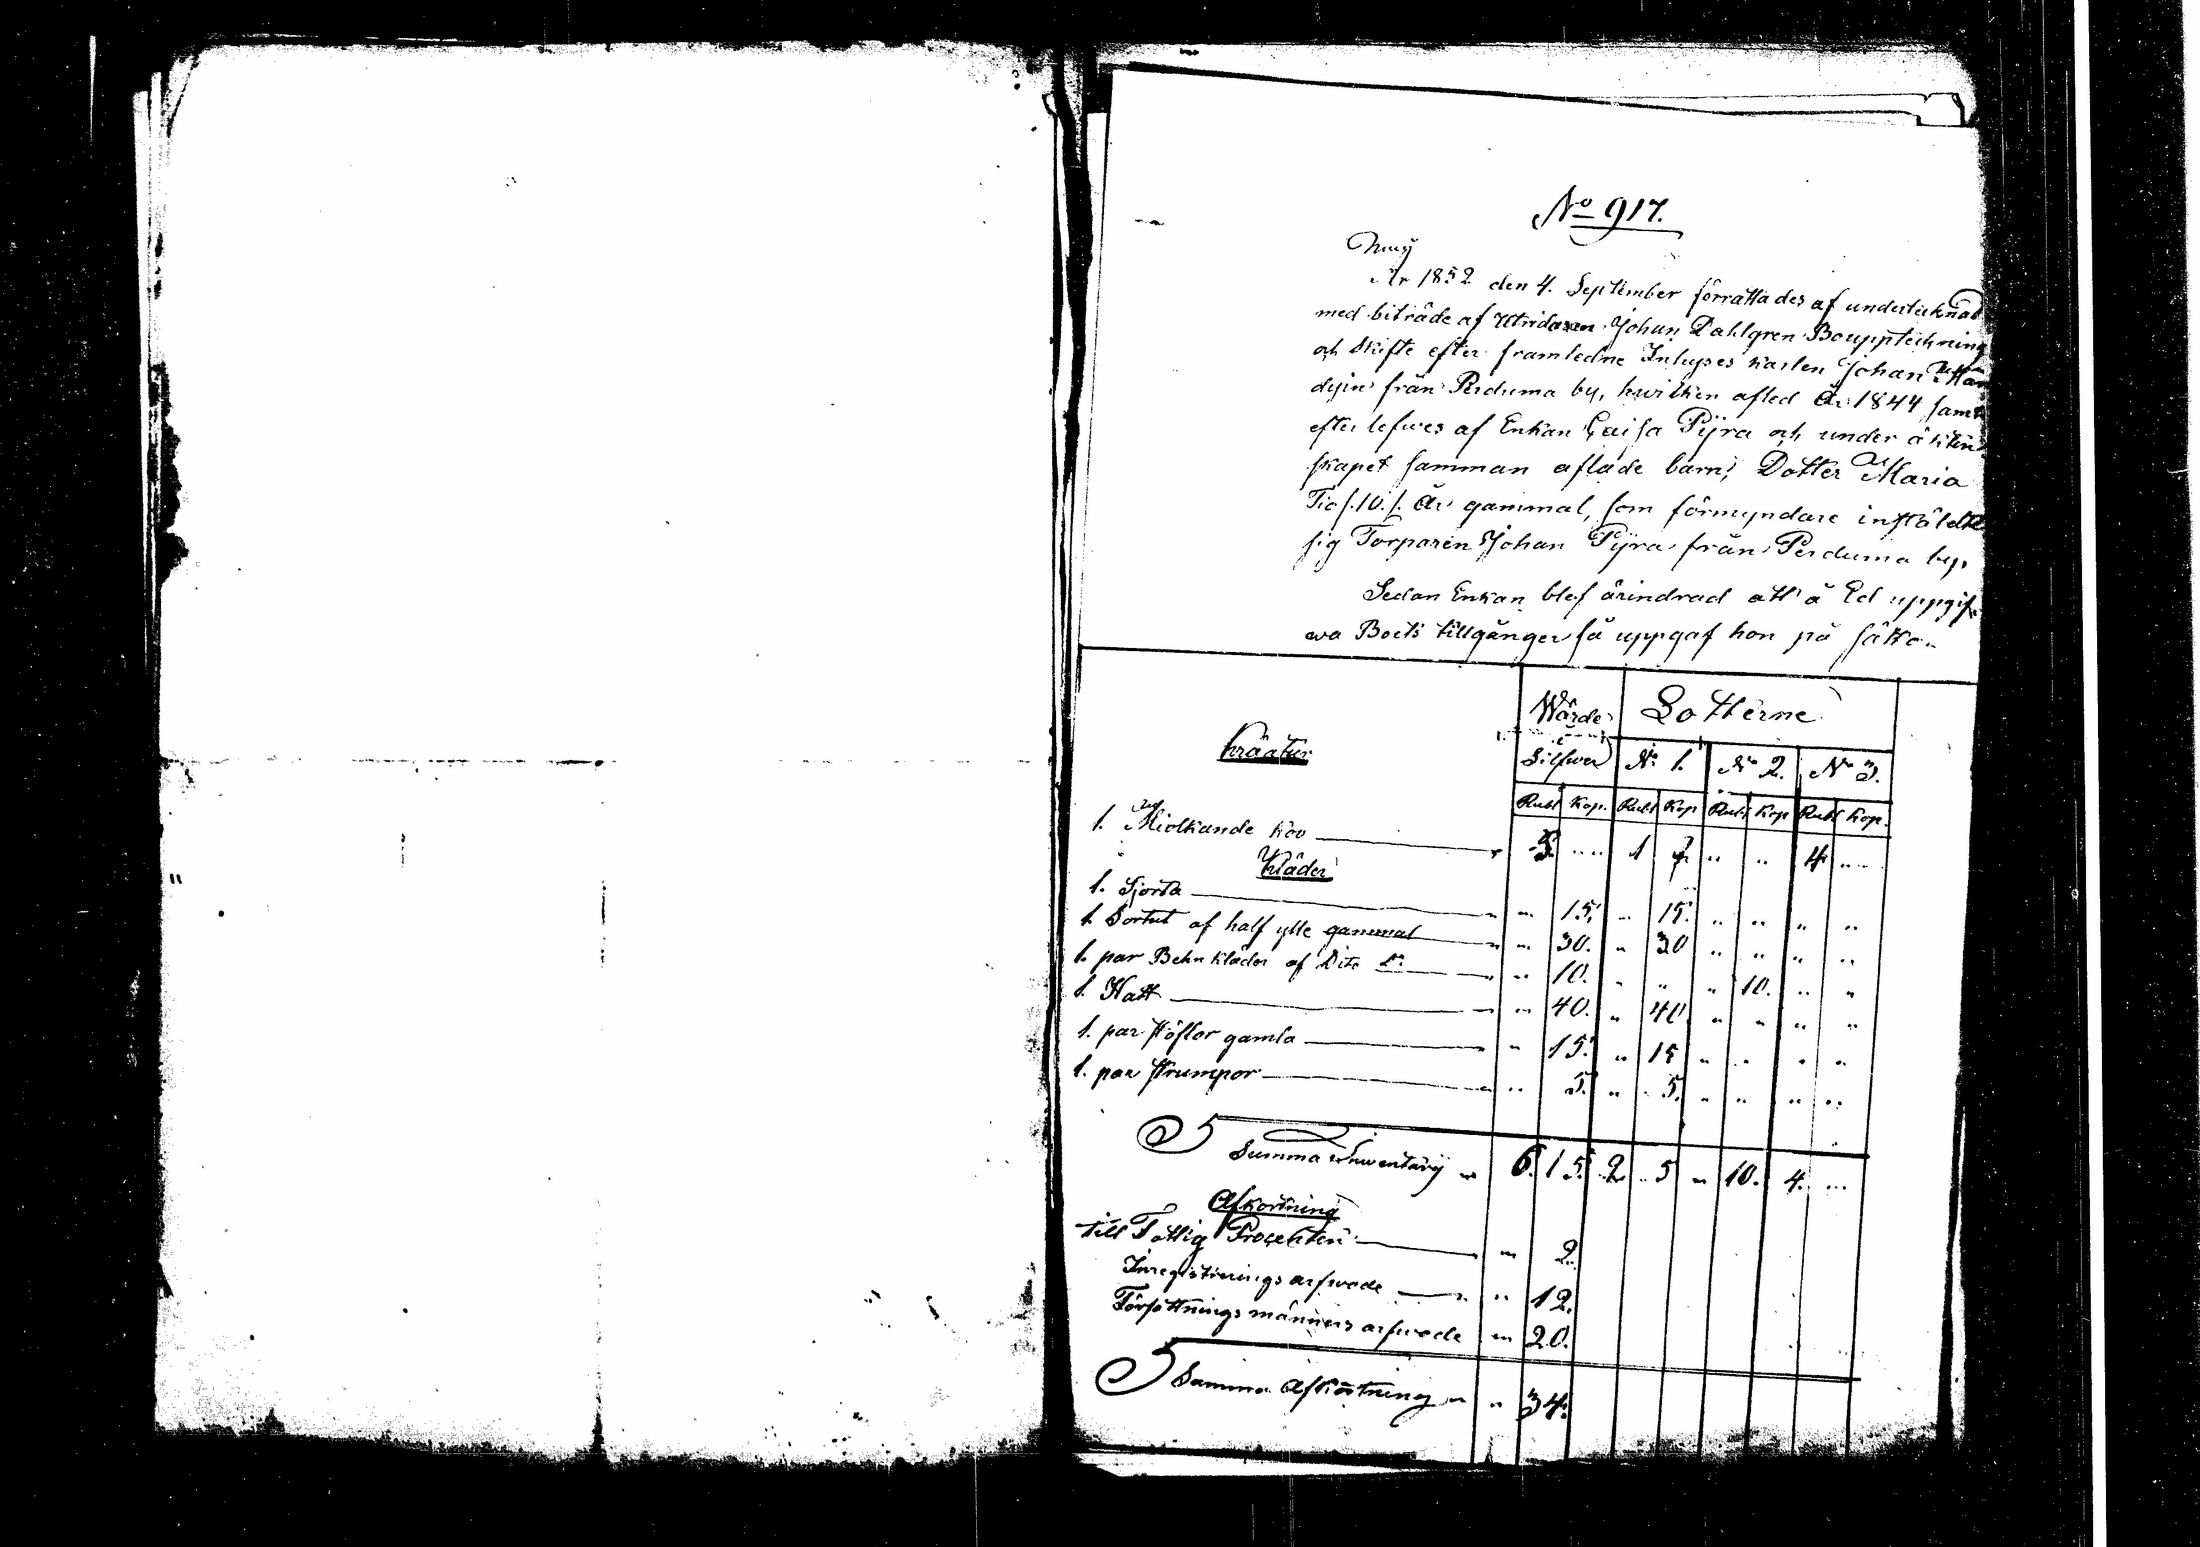 No 917.
År 1852 den 4. September förrättades af undertecknad
med biträde af Johan Dahlgren Boupptekning
och Skifte efter framledne Inhyses karlen Johan
från Perduma by, hwilken afled År 1844 samt
efter lefwes af Enkan Caisa Pÿra och under äkten
skapet samman aflade barn; Dotter Maria
Tio /.10./. År gammal, som förmyndare instälde
sig Torparen Johan Pÿra från Perduma by.
Sedan Enkan blef ärindrad att å Ed uppgif-
wa Boets tillgånger så uppgaf hon på sätt
Wärde i Silfwer Lotterne
Kräatur No 1. No 2. No 3.
Rubl Kop. Rubl Kop Rubl Kop Rubl Kop.
1. Miolkande koo 5. „ 1 „ „ 4 „
Kläder
1. Sjorta „ 15. „ 15. „ „ „ „
1. Sortut af half ylle gammal „ 30. „ 30 „ „ „ „
1. par Behn kläder af Dito Do „ 10. „ „ „ 10. „ „
1. Hatt „ 40. „ 40 „ „ „ „
1. par stöflor gamla „ 15. „ 15 „ „ „ „
1. par strumpor „ 5. „ 5. „ „ „ „
Summa Inwentary „ 6. 15. 2 „ 5 „ 10. 4. „
Afkortning
till Fattig Procenten „ 2.
Inregistrerings arfwode „ 12.
Förrättnings männens arfwode „ 20.
Summa Afkortning „ „ 34.